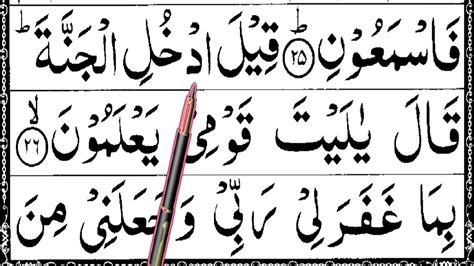 فَاسْمَعُوْنِ ؕ ۲۵ قِيْلَ ادْخُلِ الْجَنَّةَ ؕ
قَالَ يٰلَيْتَ قَوْمِيْ يَعْلَمُوْنَ ۙ ۲۶
بِمَا غَفَرَ لِيْ رَبِّيْ وَجَعَلَنِيْ مِنَ